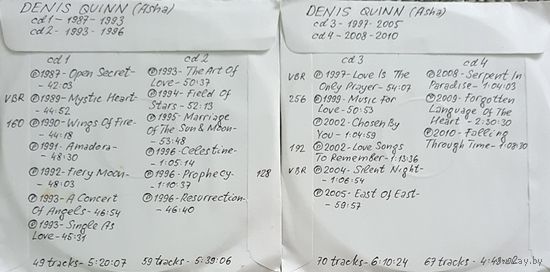 DENIS QUINN (Asha)
cd 1 - 1987 - 1993
cd 2 - 1993 - 1996
cd 1
℗ 1987 - Open Secret -
- 42:03
VBR ℗ 1989 - Mystic Heart -
- 44:52
160 ℗ 1990 - Wings Of Fire -
- 44:18
℗ 1991 - Amadora -
- 48:30
℗ 1992 - Fiery Moon -
- 48:03
℗ 1993 - A Concert
Of Angels - 46:54
℗ 1993 - Single As
Love - 45:31
49 tracks - 5:20:07
cd 2
℗ 1993 - The Art Of
Love - 50:37
℗ 1994 - Field Of
Stars - 52:13
℗ 1995 - Marriage
Of The Sun & Moon -
- 53:48
℗ 1996 - Celestine -
- 1:05:14
℗ 1996 - Prophecy - 128
- 1:10:37
℗ 1996 - Resurrection -
- 46:40
59 tracks - 5:39:06
DENIS QUINN (Asha)
cd 3 - 1997 - 2005
cd 4 - 2008 - 2010
cd 3
VBR ℗ 1997 - Love Is The
Only Prayer - 54:07
256 ℗ 1999 - Music For
Love - 50:53
℗ 2002 - Chosen By
You - 1:04:59
192 ℗ 2002 - Love Songs
To Remember - 1:13:36
VBR ℗ 2004 - Silent Night -
- 1:06:54
℗ 2005 - East Of East -
- 59:57
70 tracks - 6:10:24
cd 4
℗ 2008 - Serpent In
Paradise - 1:04:03
℗ 2009 - Forgotten
Language Of The
Heart - 2:30:30
℗ 2010 - Falling
Through Time - 1:08:30
67 tracks -